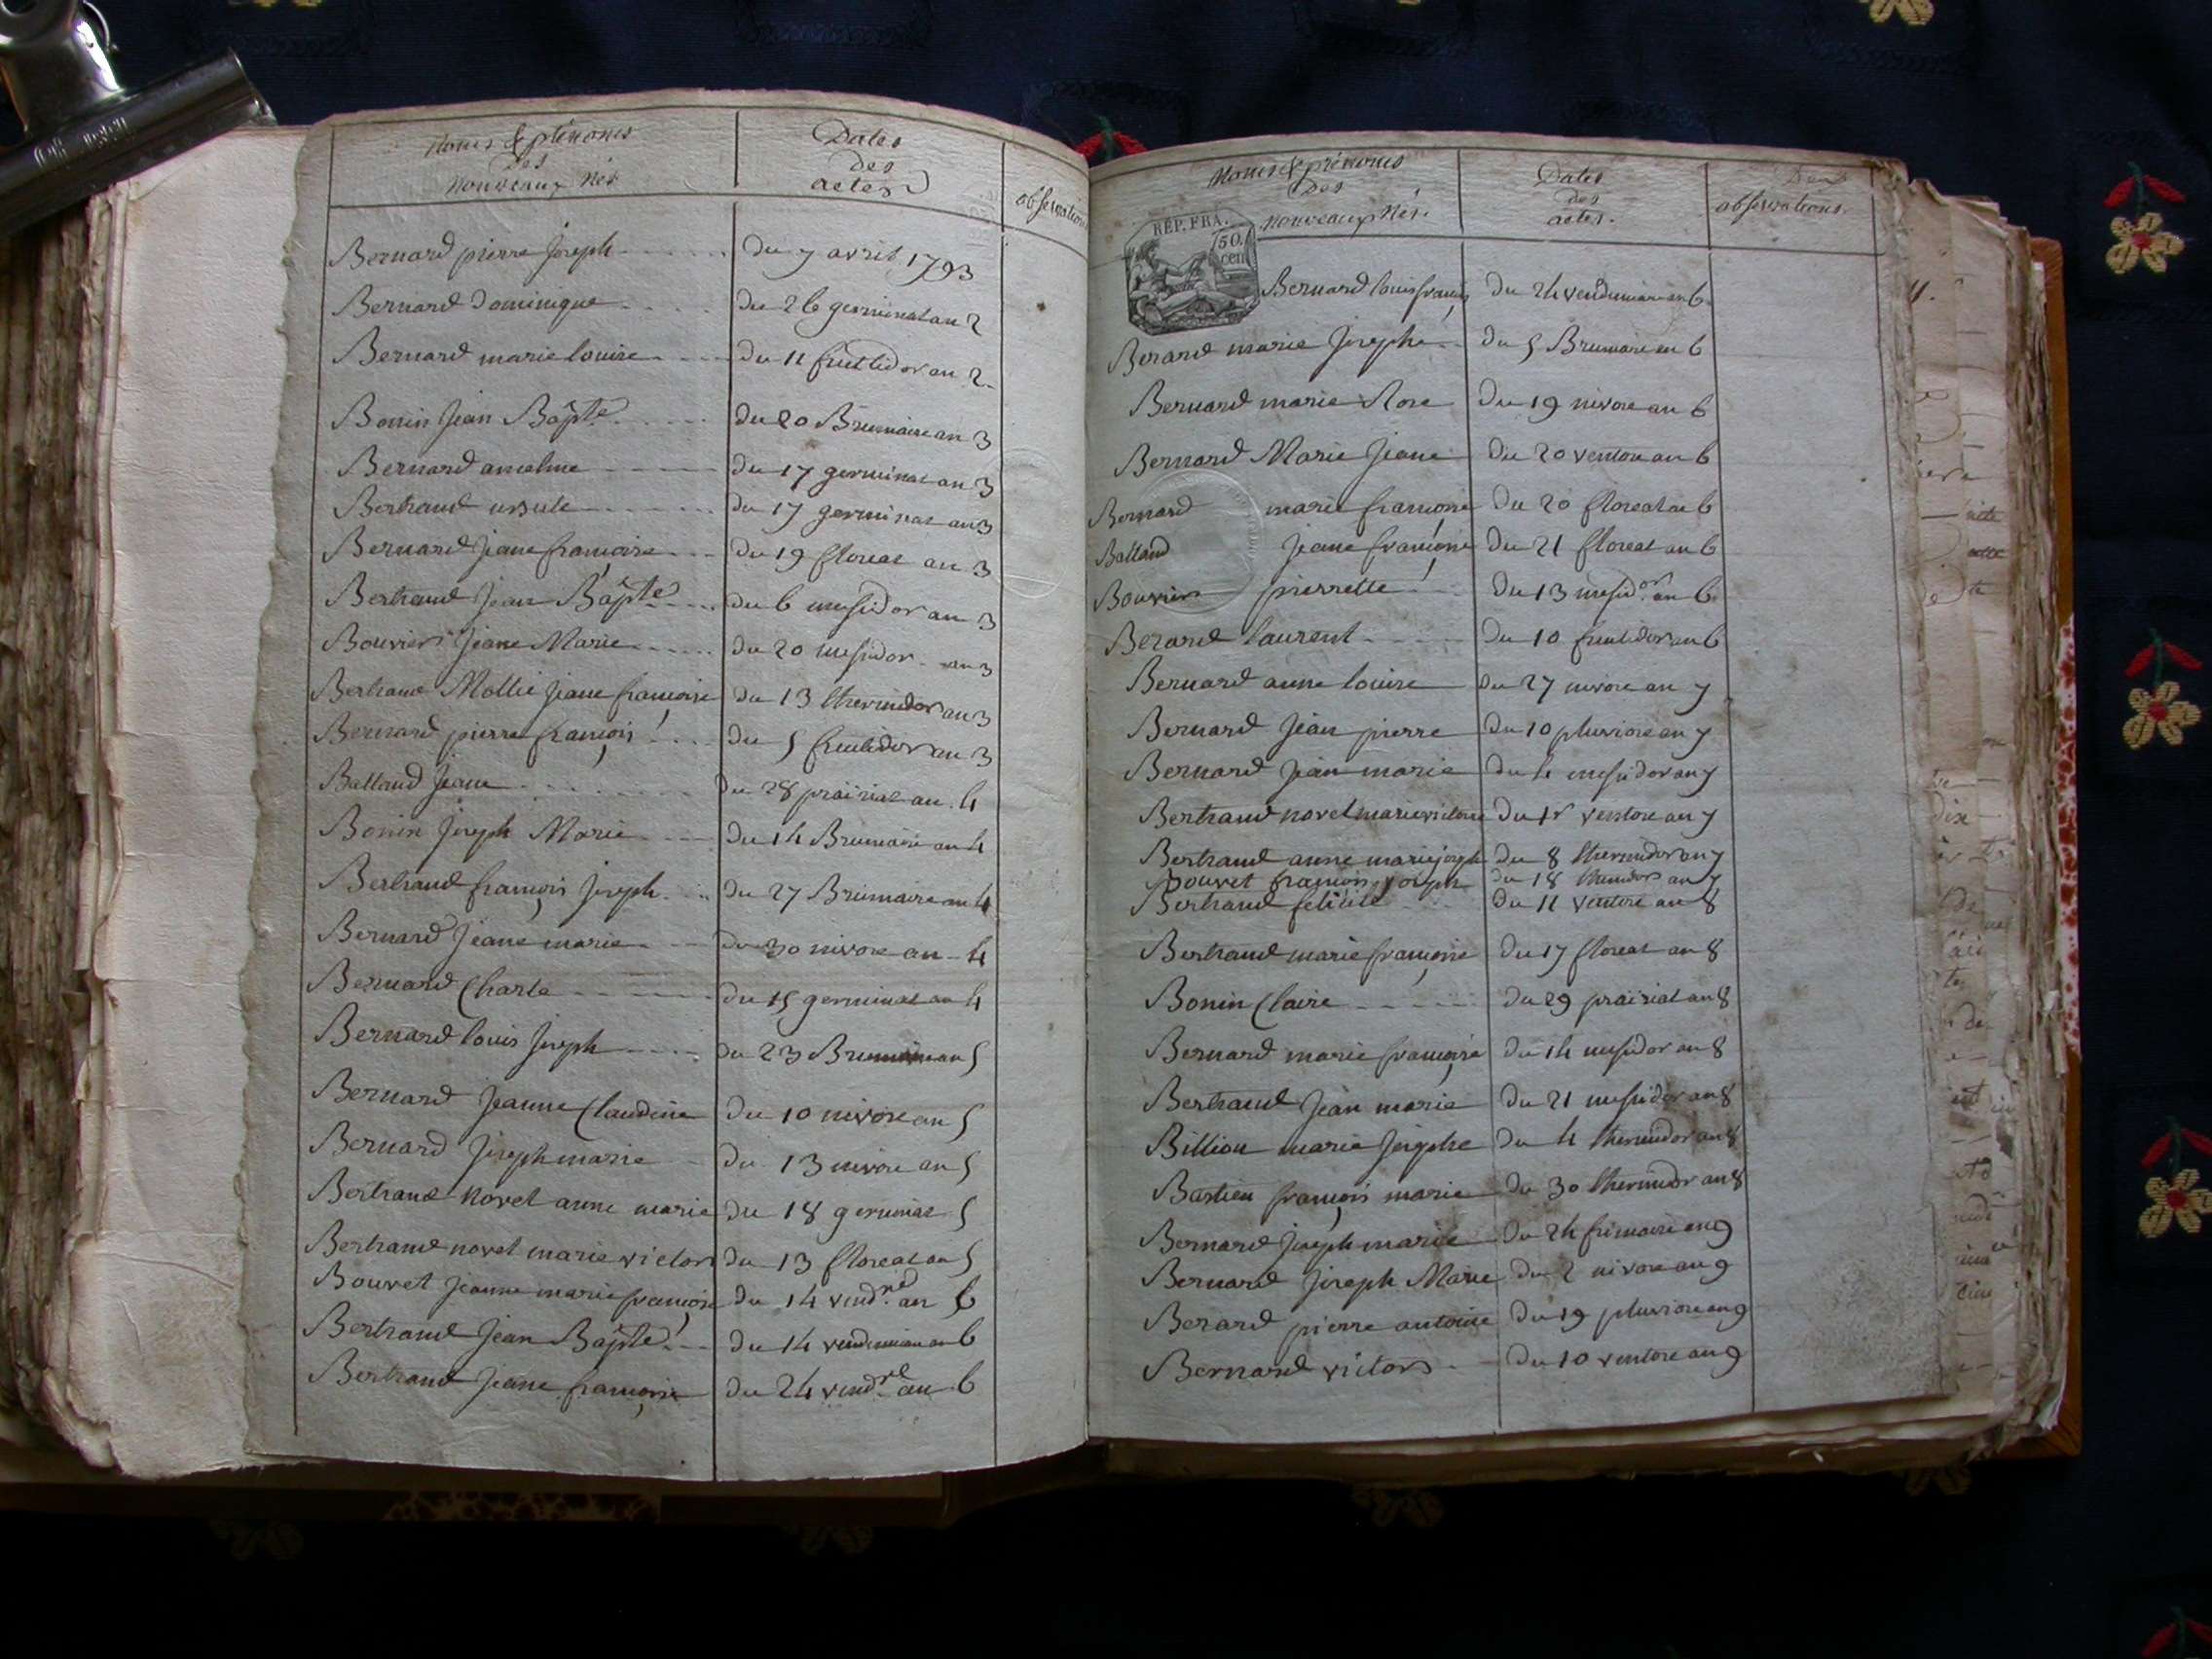 Noms & prénoms
Des
Nouveaux Nés
Dates
des
actes
observations
Bernard pierre joseph du 7 avril 1793
Bernard Dominique du 26 germinal an 2
Bernard marie louise du 11 fructidor an 2
Bonin jean Bapte du 20 Brumaire an 3
Bernard anselme du 17 germinal an 3
Bertrand ursule du 17 germinal an 3
Bernard jeane françoise du 19 floreal an 3
Bertrand jean Bapte du 6 messidor an 3
Bouvier jeane Marie du 20 messidor an 3
Bertrand Mollie jeane françoise du 13 thermidor an 3
Bernard pierre françois du 5 fructidor an 3
Balland jeane du 28 prairial an 4
Bonin joseph Marie du 14 Brumaire an 4
Bertrand françois joseph du 27 Brumaire an 4
Bernard jeane marie du 30 nivose an 4
Bernard Charle du 15 germinal an 4
Bernard louis joseph du 23 Brumaire an 5
Bernard jeanne Claudine du 10 nivose an 5
Bernard joseph marie du 13 nivose an 5
Bertrand novel anne marie du 18 germinal 5
Bertrand novel marie victor du 13 floreal an 5
Bouvet jeanne marie françoise du 14 vend.re an 6
Bertrand jean Bapte du 14 vendemiaire an 6
Bertrand jeane françoise du 24 vend.re an 6
Noms & prénoms
Des
nouveaux Nés
Dates
des
actes.
observations.
RÉP. FRA.
50
cen
Bernard louis françois du 24 vendemiaire an 6
Berard marie josephe du 5 Brumaire an 6
Bernard marie Rose du 19 nivose an 6
Bernard Marie jeane du 20 ventose an 6
Bernard marie françoise du 20 floreal an 6
Balland jeane françoise du 21 floreal an 6
Bouvier pierrette du 13 messid.or an 6
Berard laurent du 10 fructidor an 6
Bernard anne louise du 27 nivose an 7
Bernard jean pierre du 10 pluviose an 7
Bernard jean marie du 4 messidor an 7
Bertrand novel marie victoire du 1r ventose an 7
Bertrand anne marie joseph du 8 thermidor an 7
Bouvet françois joseph du 18 thermidor an 7
Bertrand felicité du 11 ventose an 8
Bertrand marie françoise du 17 floreal an 8
Bonin Claire du 29 prairial an 8
Bernard marie françoise du 14 messidor an 8
Bertrand jean marie du 21 messidor an 8
Billiou marie josephe du 4 thermidor an 8
Bastien françois marie du 30 thermidor an 8
Bernard joseph marie du 24 frimaire an 9
Bernard joseph Marie du 2 nivose an 9
Berard pierre antoine du 19 pluviose an 9
Bernard victors du 10 ventose an 9